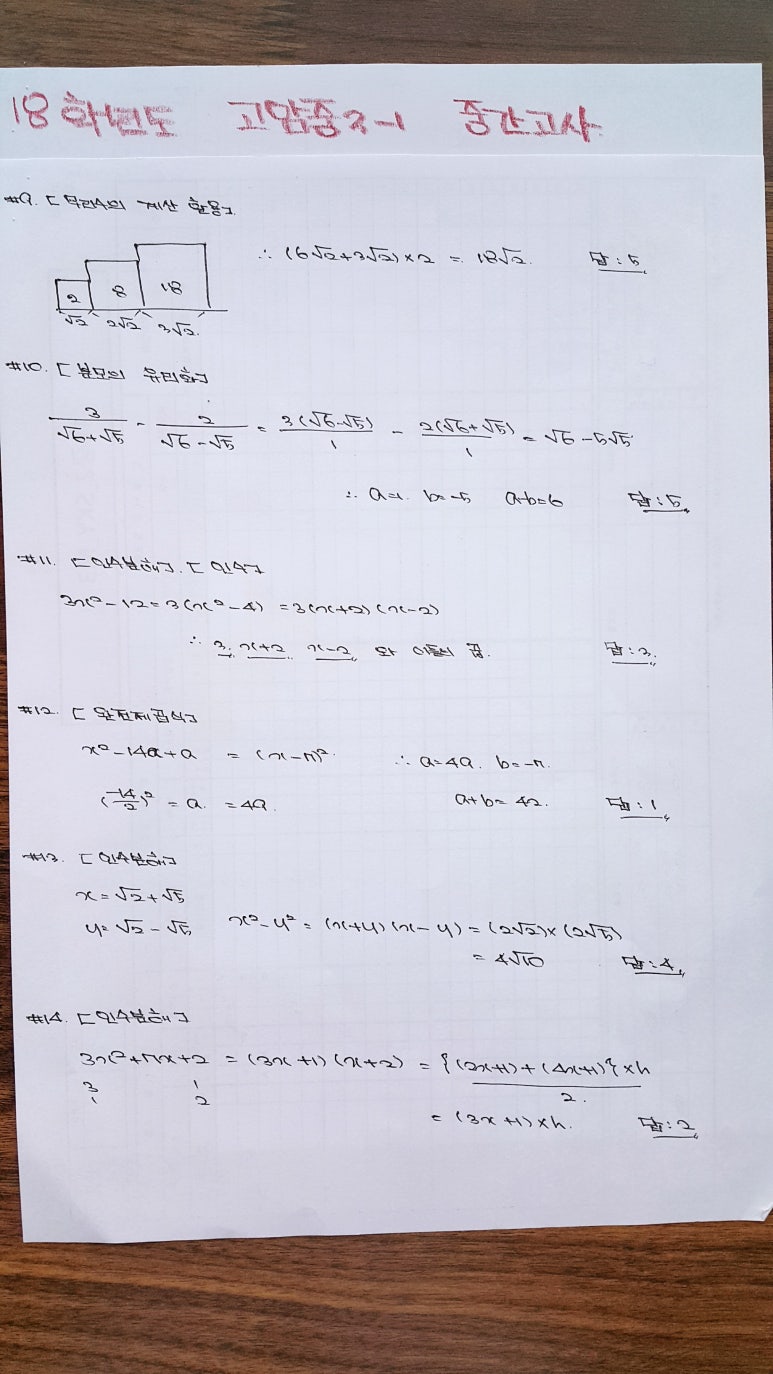 18학년도 고암중 3-1 중간고사
#9. [무리수의 계산 활용]
2 8 18
√2 2√2 3√2
∴ (6√2+3√2)×2 = 18√2. 답 : 5
#10. [분모의 유리화]
3/(√6+√5) - 2/(√6-√5) = 3(√6-√5)/1 - 2(√6+√5)/1 = √6-5√5
∴ a=1. b=-5 a-b=6 답 : 5
#11. [인수분해]. [인수]
3x²-12=3(x²-4) =3(x+2)(x-2)
∴ 3, x+2, x-2 와 이들의 곱. 답 : 3.
#12. [완전제곱식]
x²-14x+a = (x-7)². ∴ a=49. b=-7.
(-14/2)² = a. = 49. a+b= 42. 답 : 1
#13. [인수분해]
x=√2+√5
y=√2-√5 x²-y² = (x+y)(x-y) = (2√2)×(2√5)
= 4√10 답 : 4
#14. [인수분해]
3x²+7x+2 = (3x+1)(x+2) = {(2x+1)+(4x+1)}×h/2.
3 1
1 2
= (3x+1)×h. 답 : 2